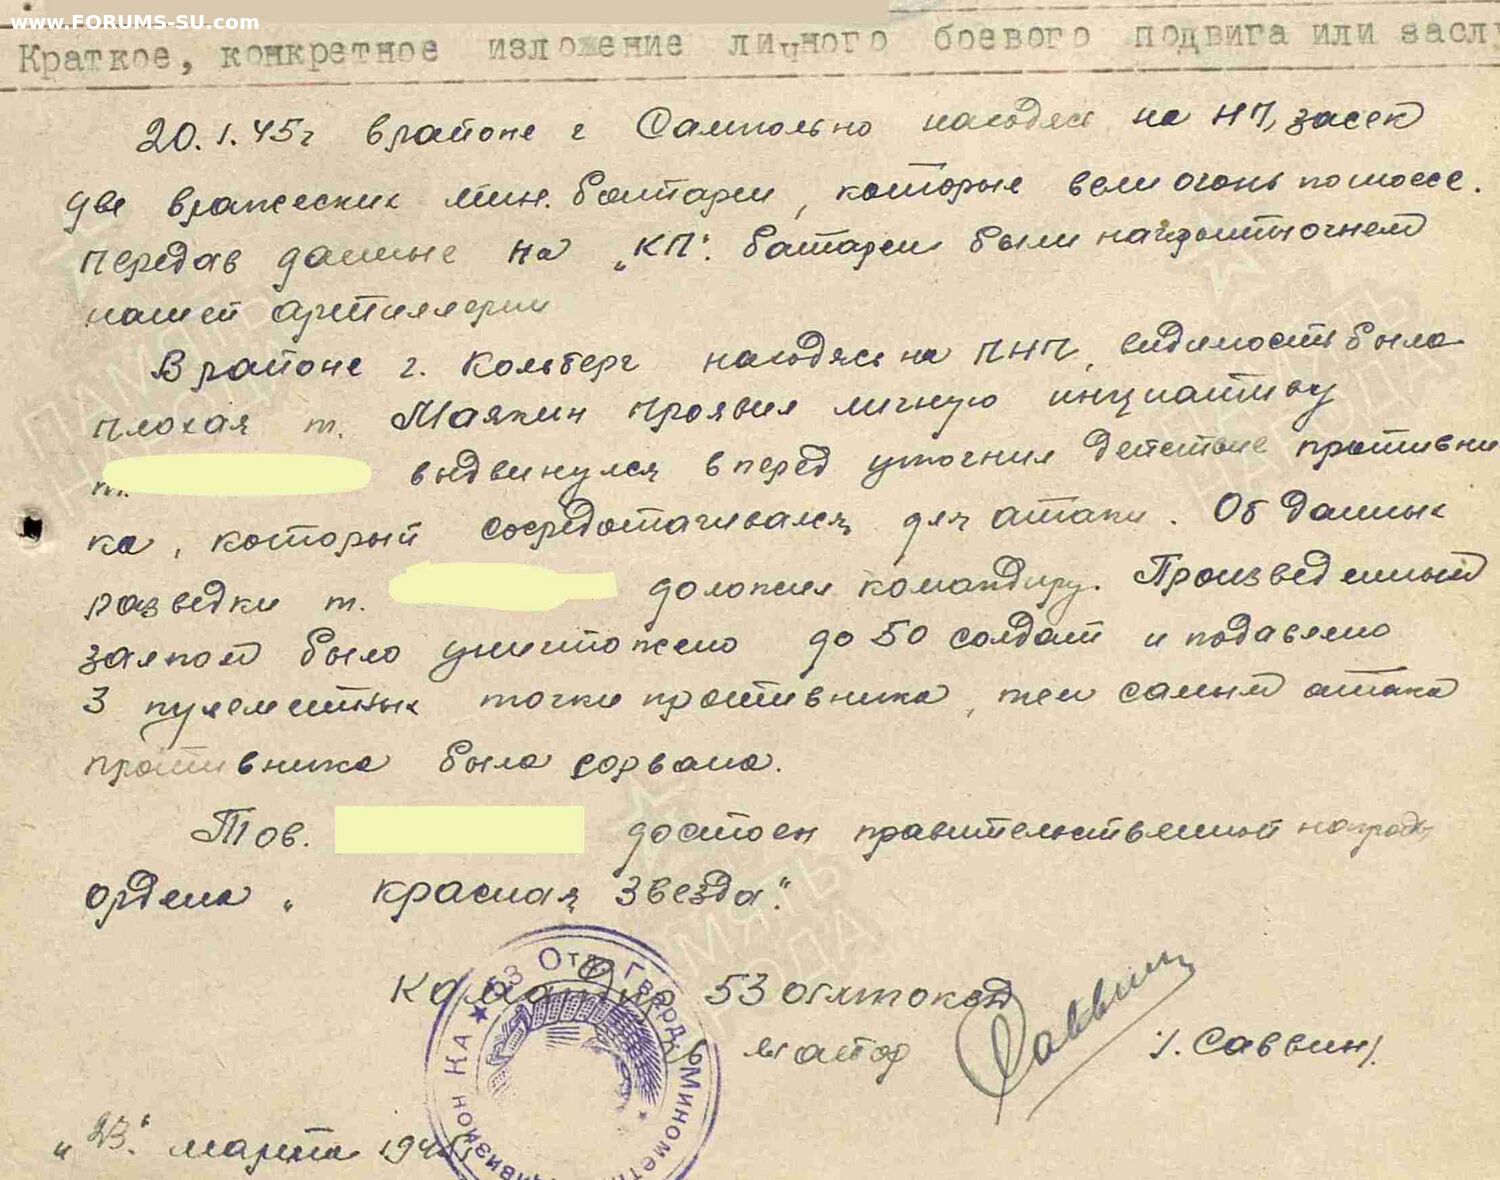 www.FORUMS-SU.com
Краткое, конкретное изложение личного боевого подвига или заслу
20.1.45г в районе г Сампольно находясь на НП, засек
две вражеских мин. батареи, которые вели огонь по шоссе.
Передав данные на "КП". батареи были накрыты огнем
нашей артиллерии
В районе г. Кольберг находясь на ПНП, видимость была
плохая т. Маякин проявил личную инциативу
т. выдвинулся вперед уточнил действие противни
ка, который сосредотачивался для атаки. Об данных
разведки т. доложил командиру. Произведенный
залпом было уничтожено до 50 солдат и подавлено
3 пулеметных точки противника, тем самым атака
противника была сорвана.
Тов. достоен правительственной награды
ордена "Красная Звезда".
Командир 53
майор /. Саввин/.
"23" марта 1945
КА ★ 53 Отд. Гвард. Миномет дивизион
ПАМЯТЬ НАРОДА